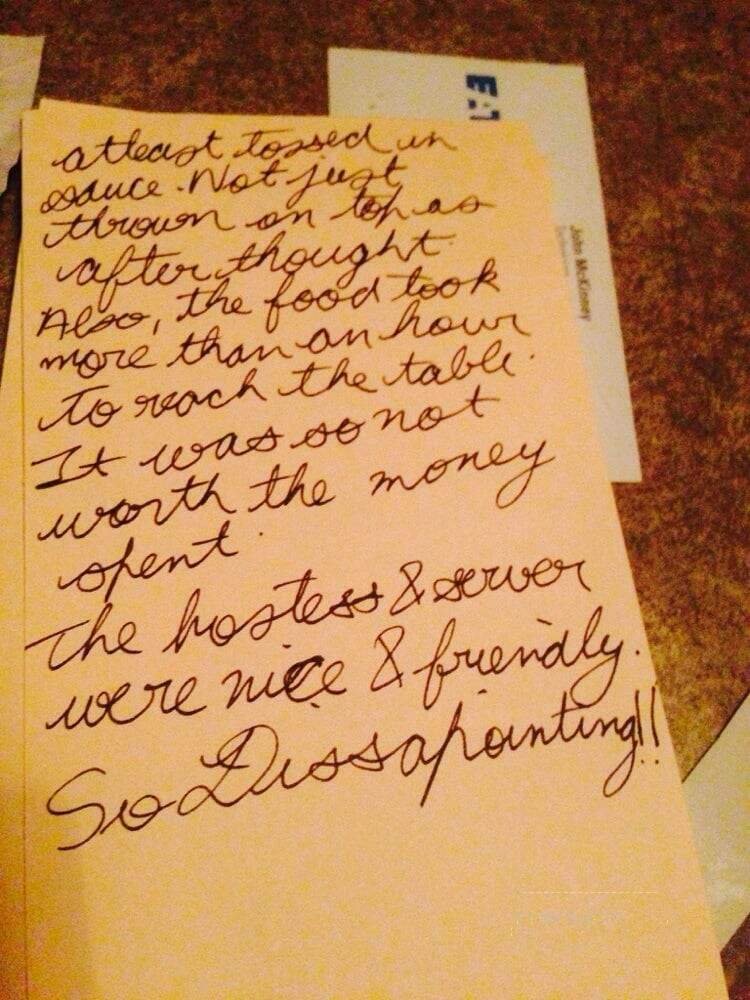 atleast tossed in
sauce. Not just
thrown on top as
after thought.
Also, the food took
more than an hour
to reach the table.
It was so not
worth the money
spent.
The hostess & server
were nice & friendly.
So Dissapointing!!
EAT
John McKinney